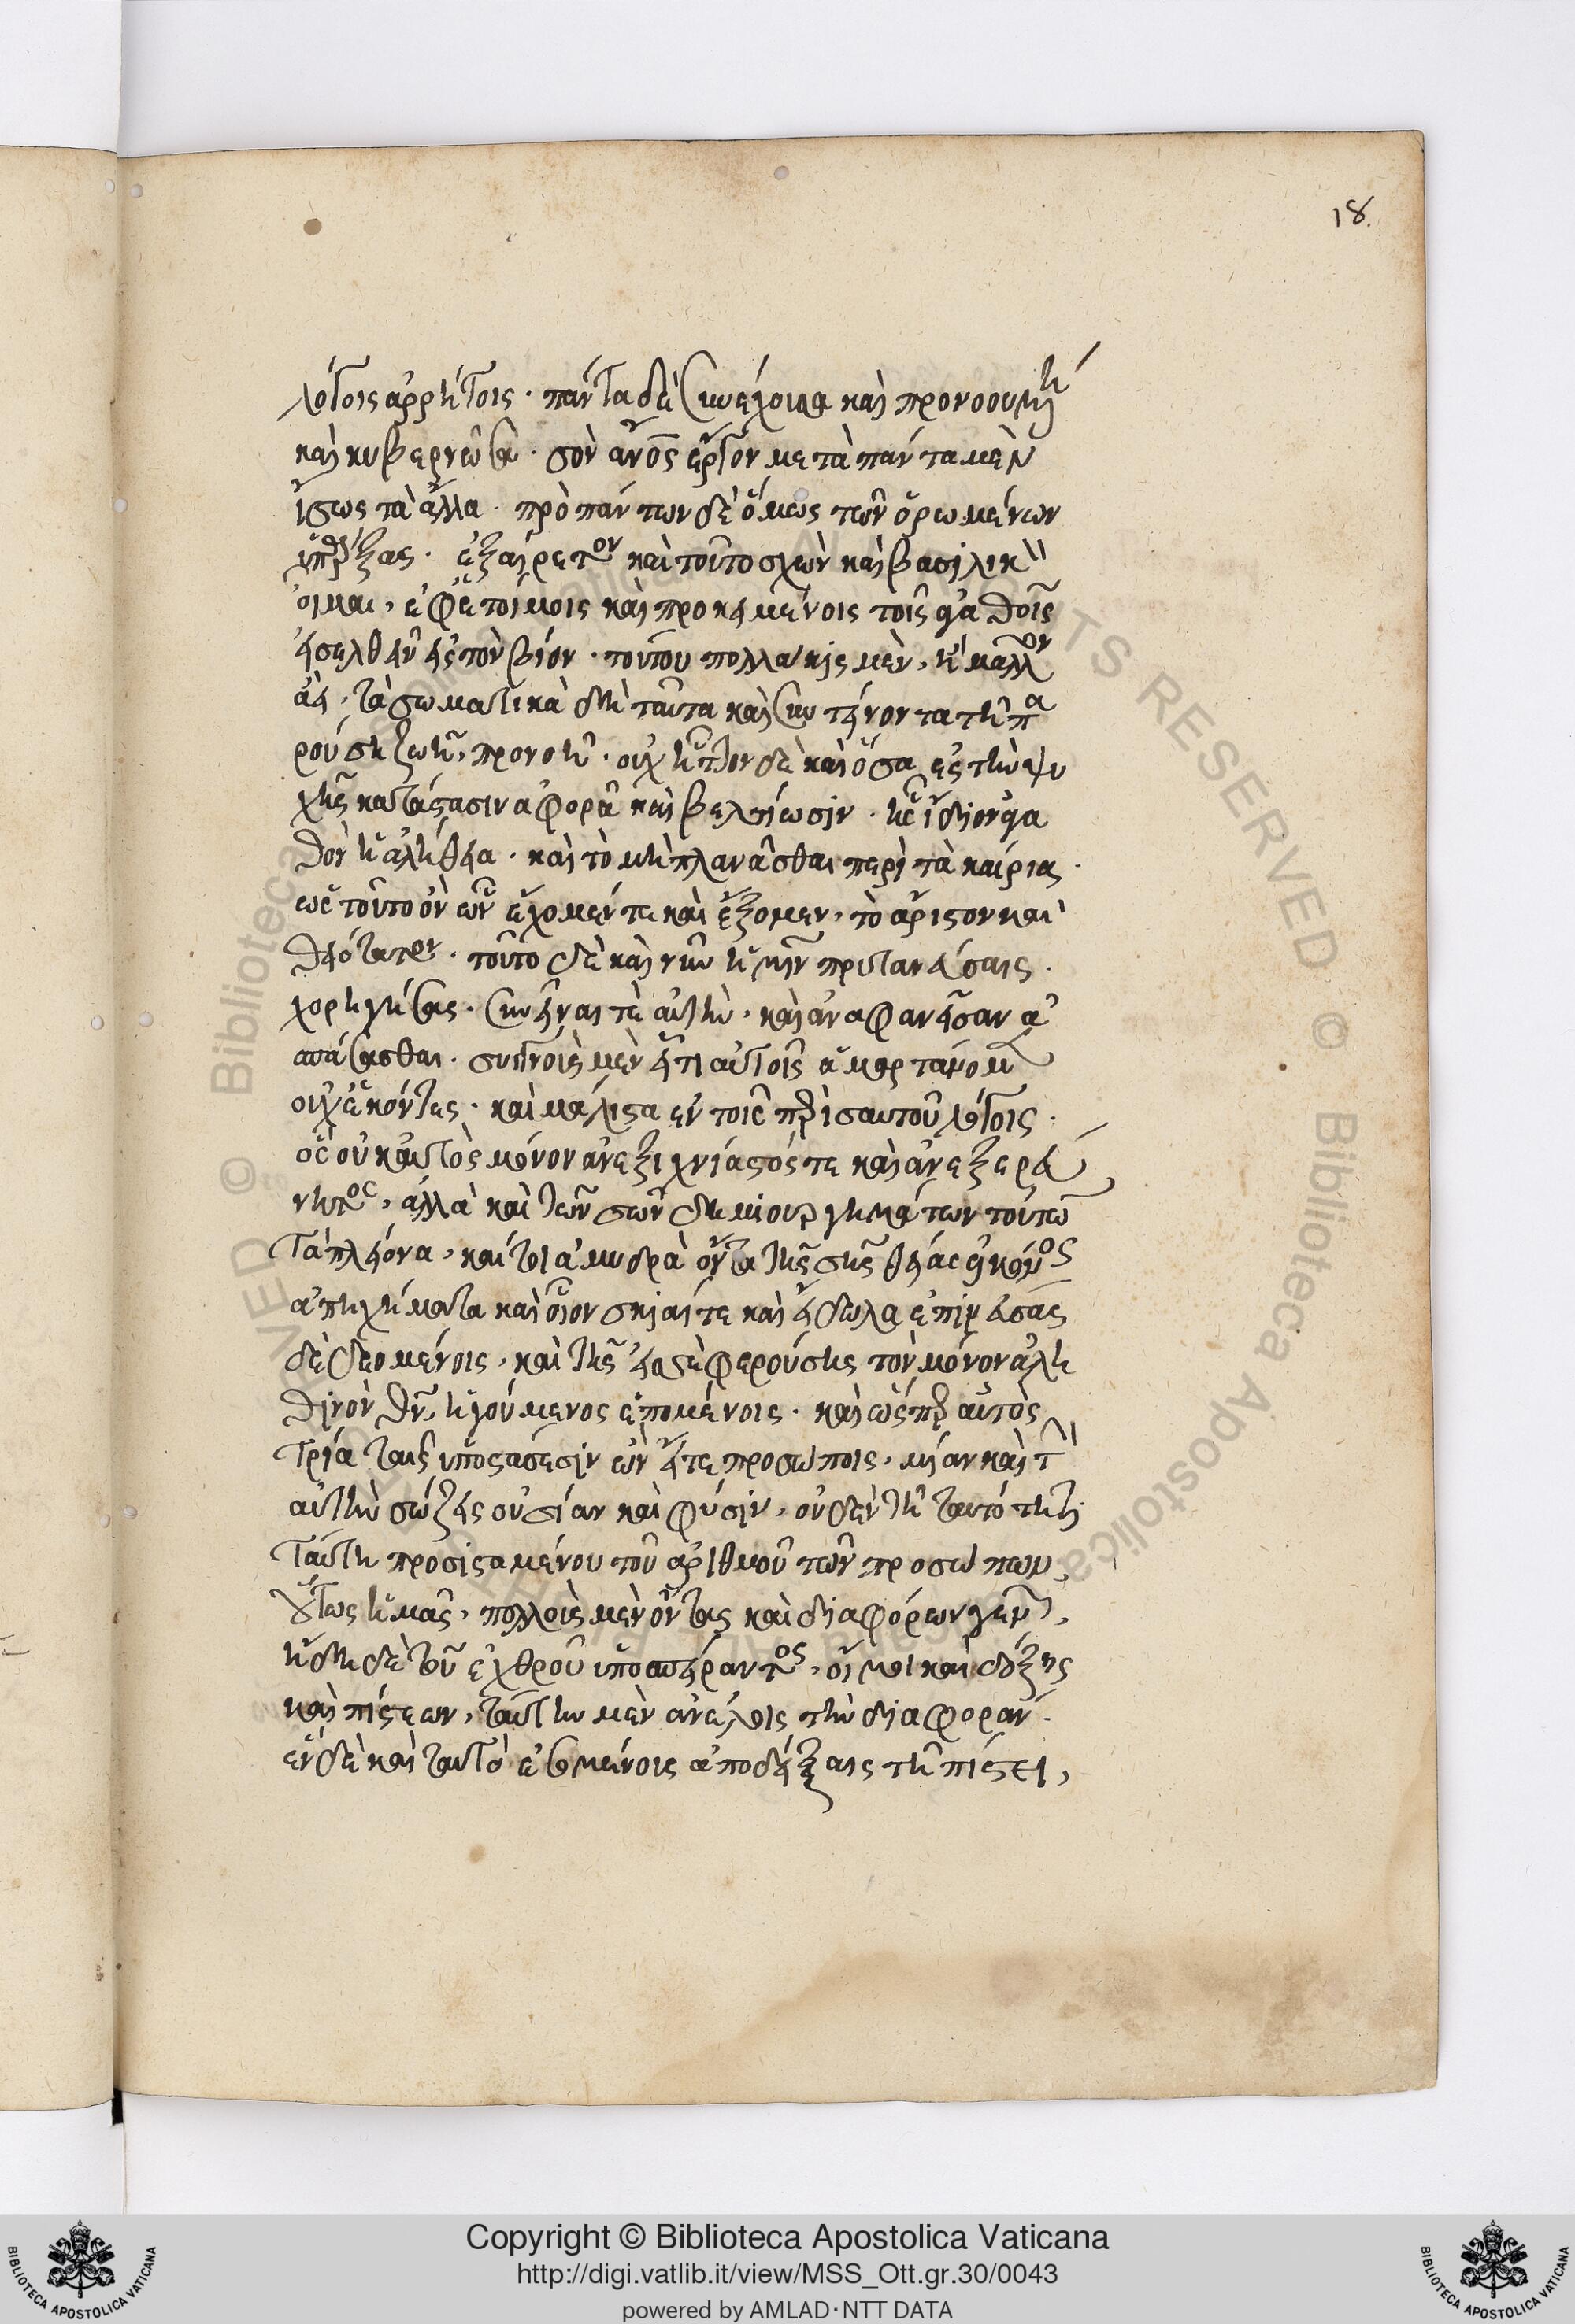 18.
λόγοις ἀρρήτοις· πάντα δὲ συνέχουσα καὶ προνοουμένη
καὶ κυβερνῶσα· σὸν ἄνος ἔργον μετὰ πάντα μὲν
ἴσως τὰ ἄλλα· πρὸ πάντων δὲ ὅμως τῶν ὁρωμένων
ὑπάρξας· ἐξαίρετον καὶ τοῦτο σχὼν καὶ βασιλικὸν
οἶμαι, ἐφ' ἑτοίμοις καὶ προκειμένοις τοῖς ἀγαθοῖς
εἰσελθεῖν εἰς τὸν βίον· τούτου πολλάκις μὲν, ἢ μᾶλλον
ἀεὶ, τὰ σωματικὰ δὴ ταῦτα καὶ συντείνοντα τῇ πα
ρούσῃ ζωῇ, προνοῇ· οὐχ ἧττον δὲ καὶ ὅσα εἰς τὴν ψυ
χῆς κατάστασιν ἀφορᾶ καὶ βελτίωσιν· ἧς ἴδιον ἀγα
θὸν ἡ ἀλήθεια· καὶ τὸ μὴ πλανᾶσθαι περὶ τὰ καίρια·
ὡς τοῦτο ὂν ὧν ἔχομέν τε καὶ ἕξομεν, τὸ ἄριστον καὶ
θειότατον· τοῦτο δὲ καὶ νῦν ἡμῖν πρυτανεύσαις·
χορηγήσας· συνεῖναί τε αὐτὴν, καὶ ἀναφανεῖσαν ἀ
σπάσασθαι· συγγνοὺς μὲν εἴ τι αὐτοῖς ἁμαρτάνομεν
οὐχ ἑκόντες· καὶ μάλιστα ἐν τοῖς περὶ σαυτοῦ λόγοις·
ὃς οὐκ αὐτὸς μόνον ἀνεξιχνίαστός τε καὶ ἀνεξερεύ
νητος, ἀλλὰ καὶ τῶν σῶν δημιουργημάτων τούτων
τὰ πλείονα, καίτοι ἀμυδρὰ ὄντα τῆς σῆς θείας εἰκόνος
ἀπηχήματα καὶ οἷον σκιαί τε καὶ εἴδωλα ἐπινεύσας
δὲ δεομένοις, καὶ τῆς εἰς σὲ φερούσης τὸν μόνον ἀλη
θινὸν θν, ἡγούμενος ἑπομένοις· καὶ ὥσπερ αὐτὸς
τρία ταῖς ὑποστάσεσιν ὢν εἴτε προσώποις, μίαν καὶ τὴν
αὐτὴν σώζεις οὐσίαν καὶ φύσιν, οὐδὲν τῇ ταυτότητι
ταύτῃ προσισταμένου τοῦ ἀριθμοῦ τῶν προσώπων,
οὕτως ἡμᾶς, πολλοὺς μὲν ὄντας καὶ διαφόρων γενῶν,
ἤδη δὲ τοῦ ἐχθροῦ ὑποσπείραντος, οἴμοι καὶ δόξης
καὶ πίστεων, ταύτην μὲν ἀνέλοις τὴν διαφοράν·
ἓν δὲ καὶ ταυτὸ ἑσμένοις ἀποδείξαις τῇ πίστει,
Copyright © Biblioteca Apostolica Vaticana
http://digi.vatlib.it/view/MSS_Ott.gr.30/0043
powered by AMLAD·NTT DATA